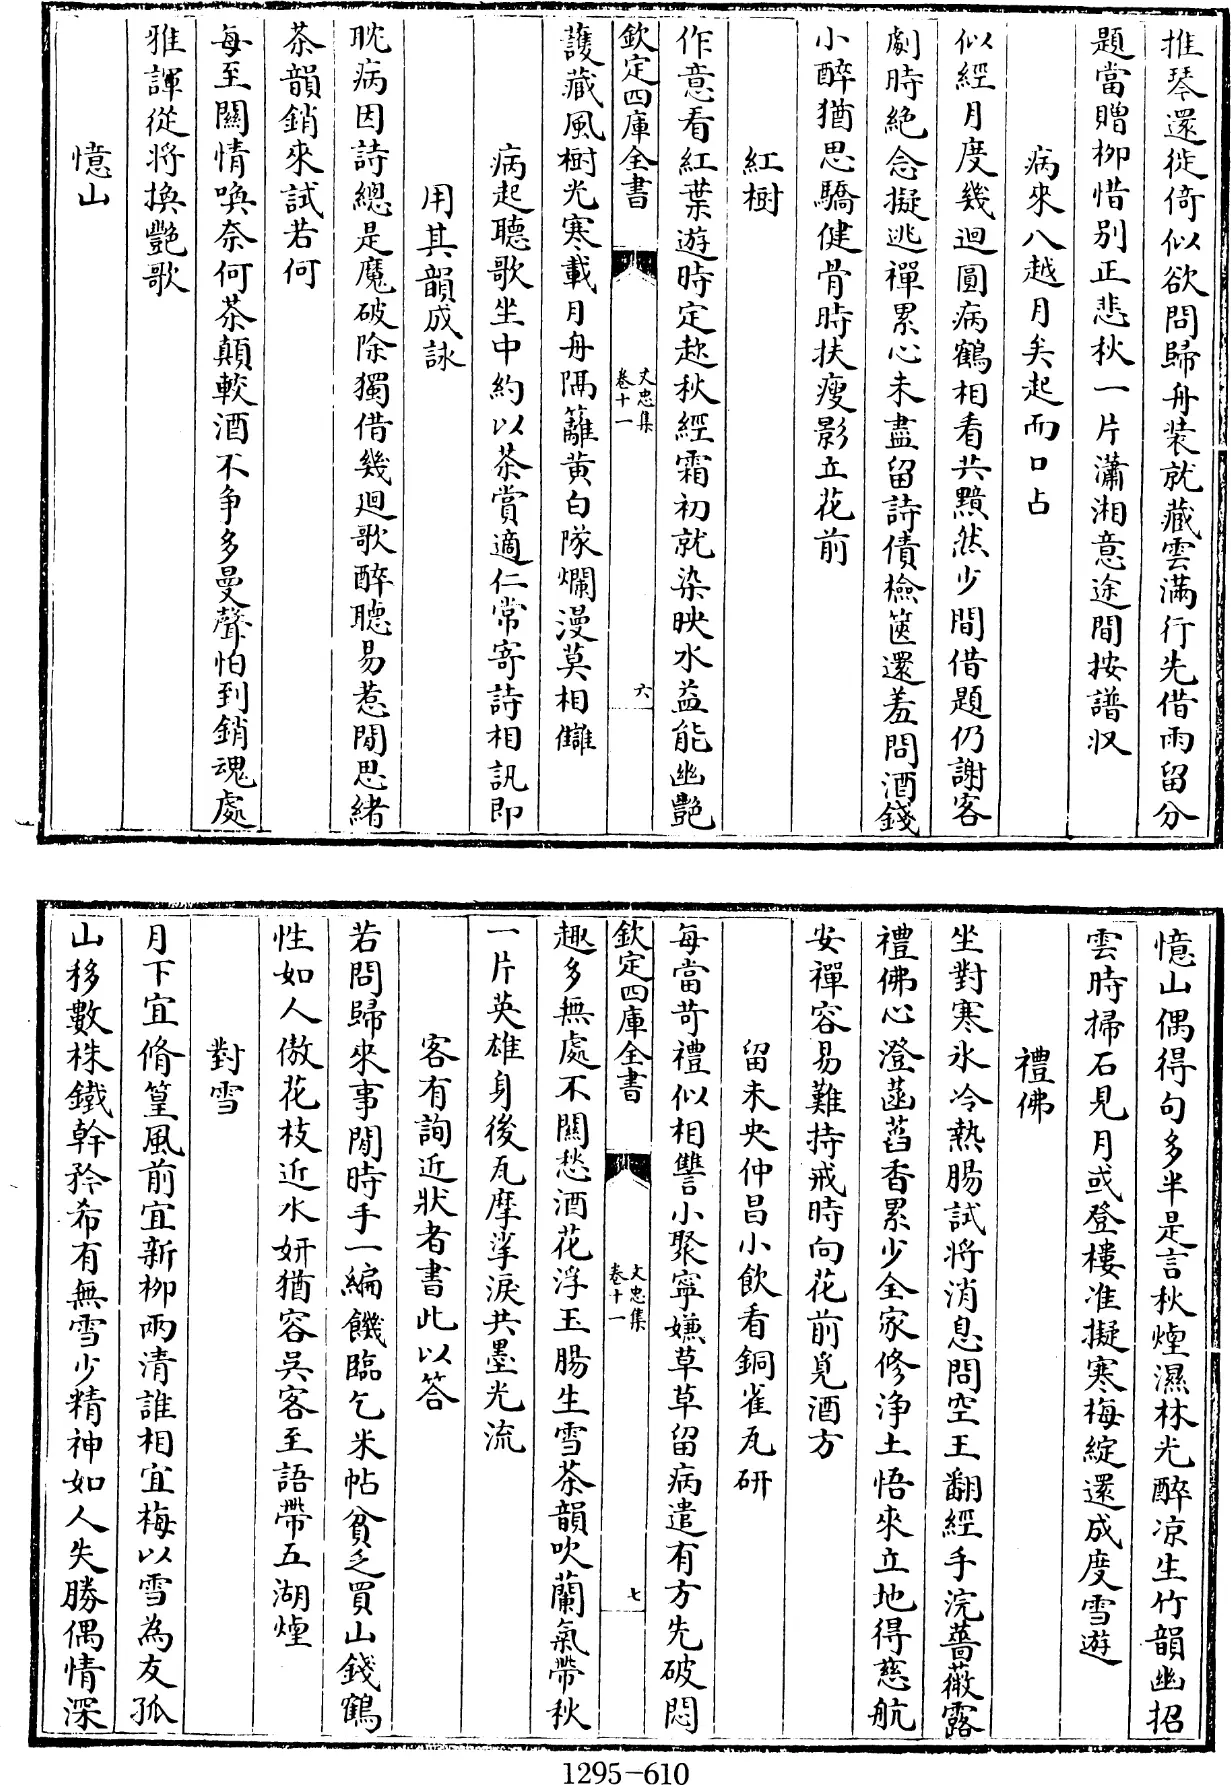 推琴還徙倚似欲問歸舟装就藏雲滿行先借雨留分
題當贈柳惜别正悲秋一片瀟湘意途間按譜収
病來八越月矣起而口占
似經月度幾迴圓病鶴相看共黯然少間借題仍謝客
劇時絶念擬逃禪累心未盡留詩債檢篋還羞問酒錢
小醉猶思驕健骨時扶瘦影立花前
紅樹
作意看紅葉遊時定趂秋經霜初就染映水益能幽艷
欽定四庫全書
文忠集
卷十一
六
護藏風樹光寒載月舟隔籬黄白隊爛漫莫相讎
病起聽歌坐中約以茶賞適仁常寄詩相訊即
用其韻成詠
耽病因詩總是魔破除獨借幾廻歌醉聽易惹閒思緒
茶韻銷來試若何
每至關情喚奈何茶顛較酒不争多曼聲怕到銷魂處
雅諢從将換艷歌
憶山
憶山偶得句多半是言秋煙濕林光醉凉生竹韻幽招
雲時掃石見月或登樓准擬寒梅綻還成度雪遊
禮佛
坐對寒氷冷熱腸試将消息問空王翻經手浣薔薇露
禮佛心澄菡萏香累少全家修浄土悟來立地得慈航
安禪容易難持戒時向花前覓酒方
留未央仲昌小飲看銅雀瓦研
每當苛禮似相讐小聚寧嫌草草留病遣有方先破悶
欽定四庫全書
文忠集
卷十一
七
趣多無處不關愁酒花浮玉腸生雪茶韻吹蘭氣帶秋
一片英雄身後瓦摩挲淚共墨光流
客有詢近狀者書此以答
若問歸來事閒時手一編饑臨乞米帖貧乏買山錢鶴
性如人傲花枝近水妍猶容吳客至語帶五湖煙
對雪
月下宜脩篁風前宜新柳兩清誰相宜梅以雪為友孤
山移數株鐵幹矜希有無雪少精神如人失勝偶情深
1295-610